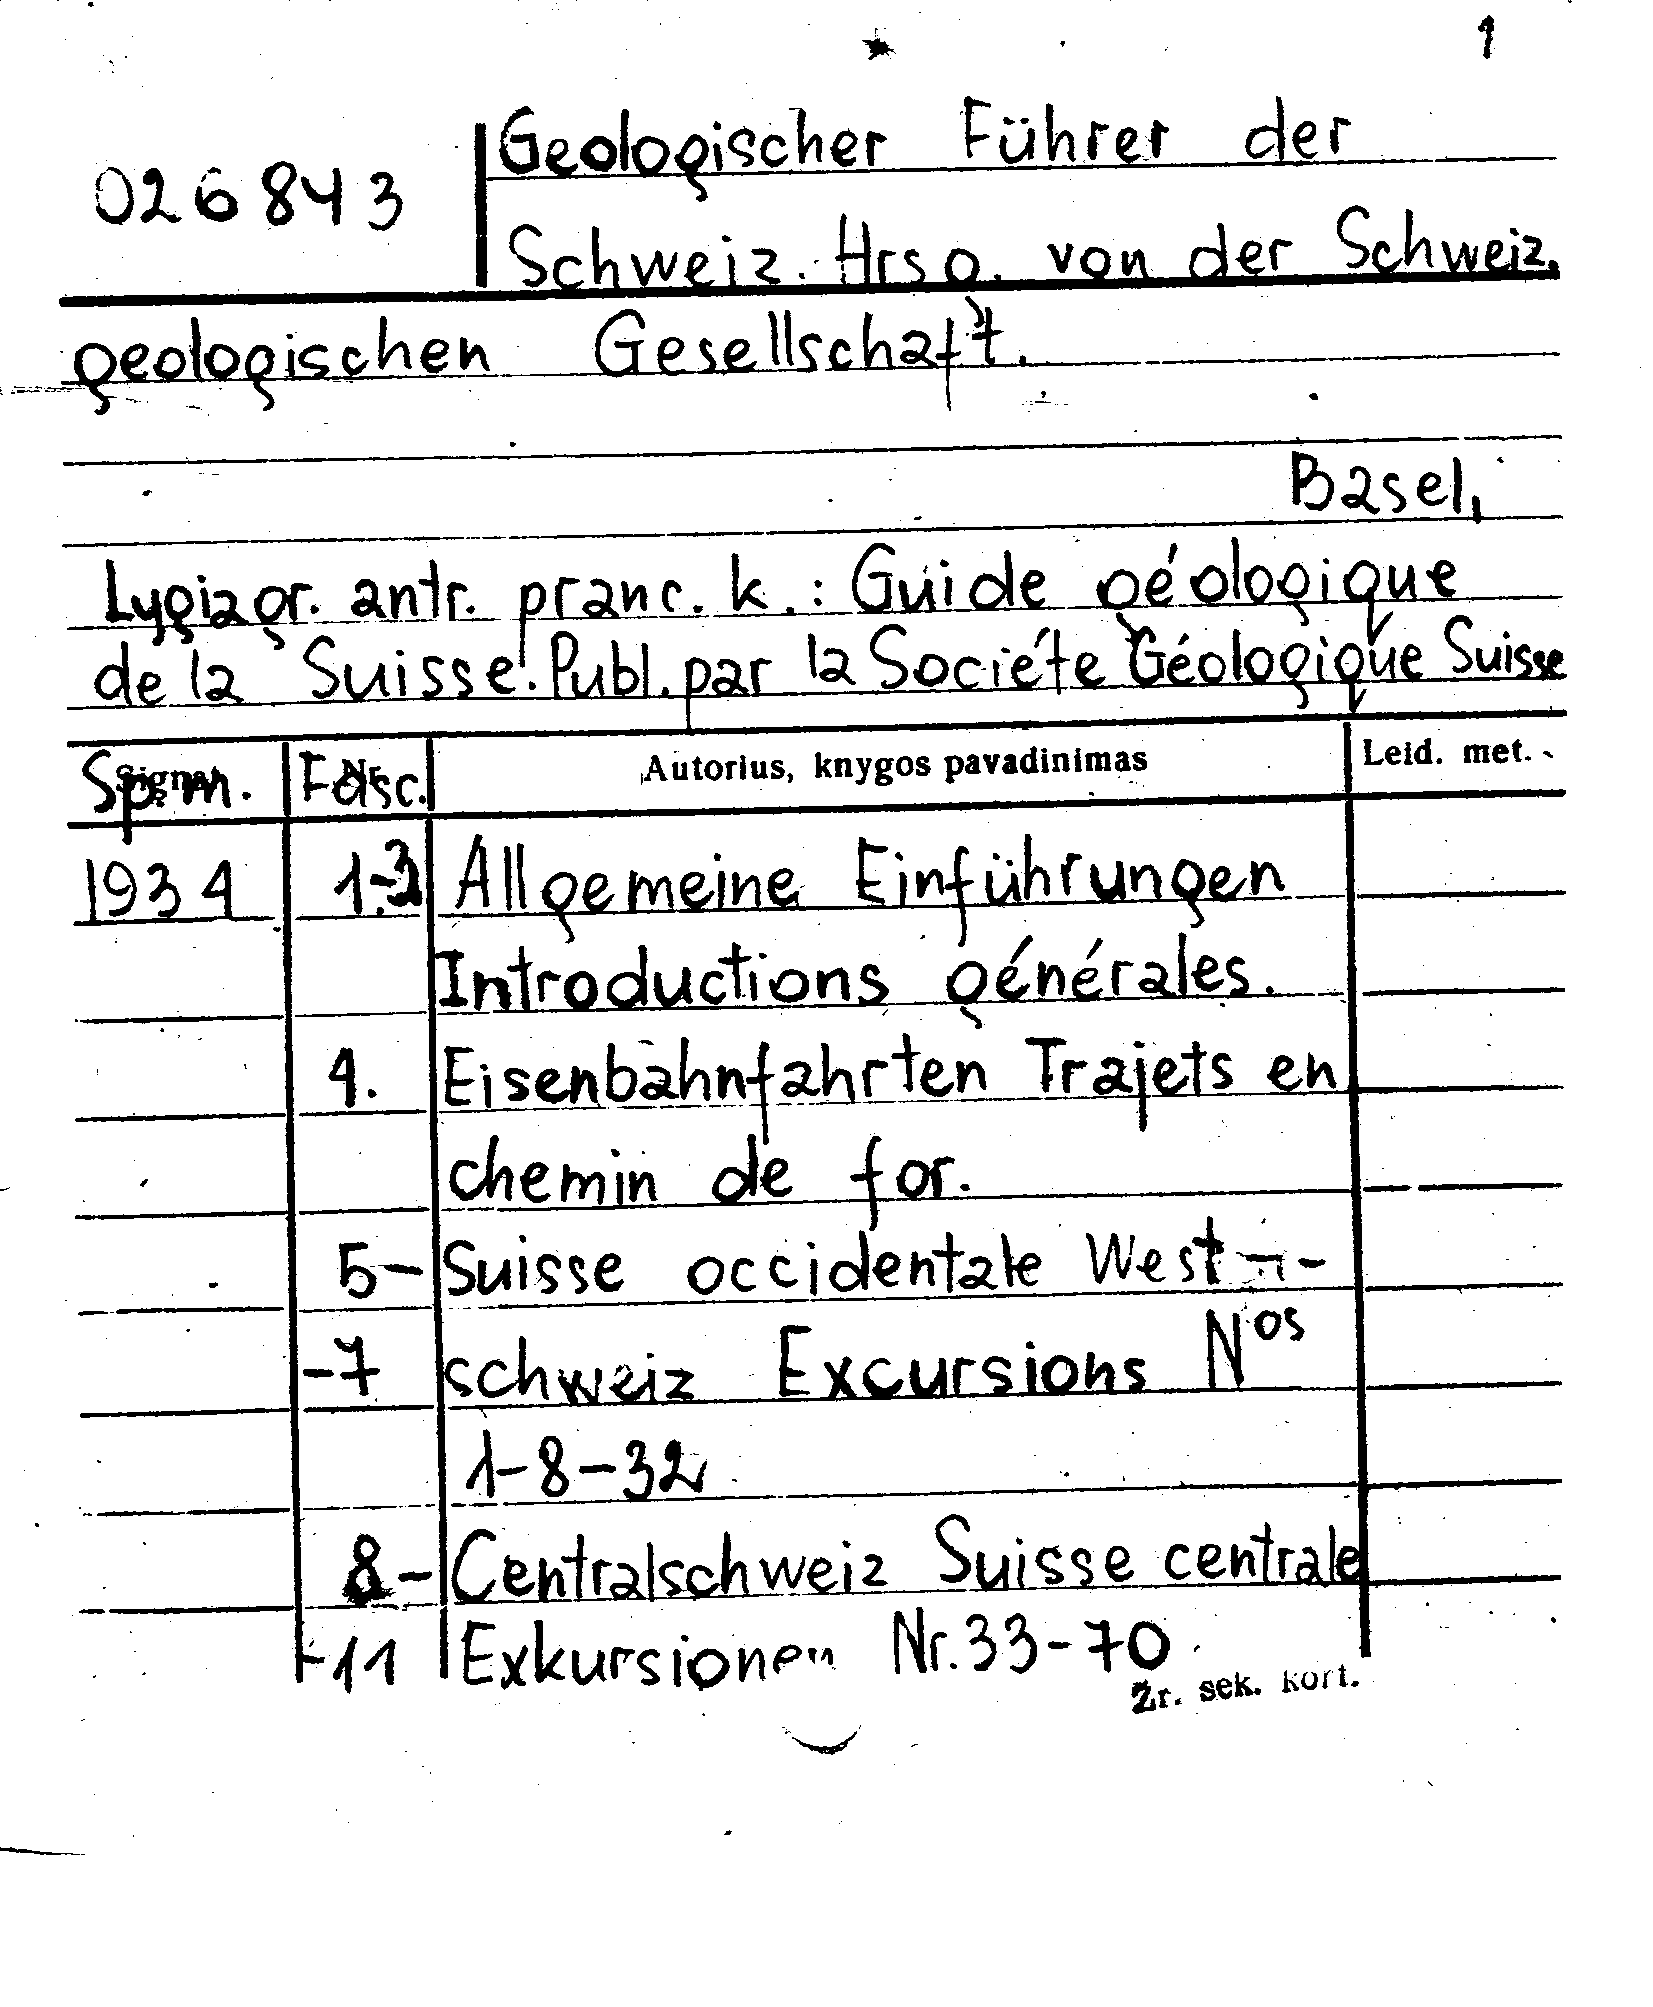 1
026843
Geologischer Führer der
Schweiz. Hrsg. von der Schweiz.
geologischen Gesellschaft.
Basel,
Lygiagr. antr. pranc. k.: Guide géologique
de la Suisse. Publ. par la Société Géologique Suisse
Sp. m. Fasc. Autorius, knygos pavadinimas Leid. met.
1934 1-3 Allgemeine Einführungen
Introductions générales.
4. Eisenbahnfahrten Trajets en
chemin de for.
5- Suisse occidentale West--
-7 schweiz Excursions Nos
1-8-32
8- Centralschweiz Suisse centrale
-11 Exkursionen Nr. 33-70
Žr. sek. kort.